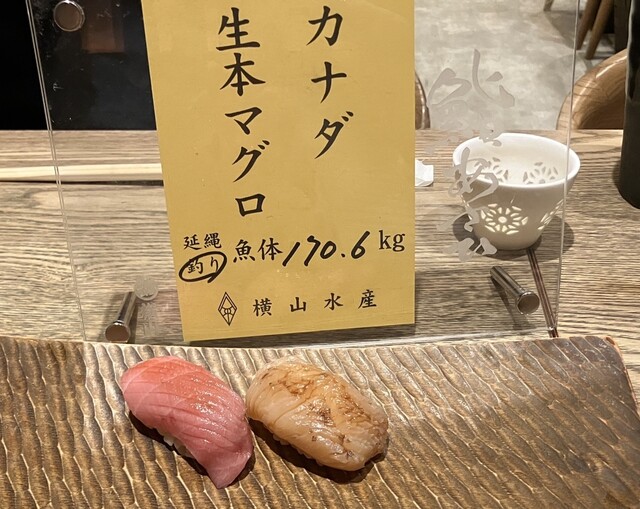 カナダ
生本マグロ
延縄
釣り
魚体170.6kg
横山水産